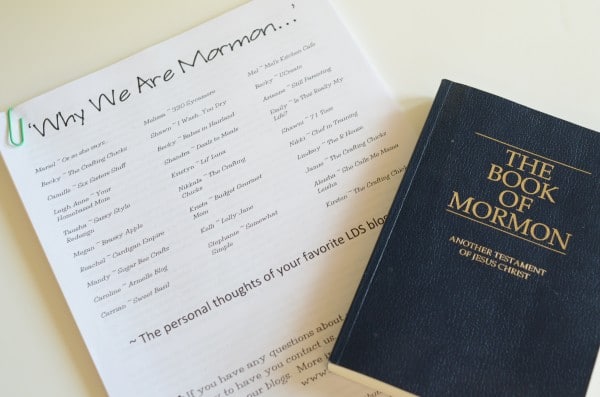 'Why We Are Mormon...'
Mariel ~ Or so she says...
Becky ~ The Crafting Chicks
Camille ~ Six Sisters Stuff
Leigh Anne ~ Your
Homebased Mom
Tausha ~ Sassy Style
Redesign
Megan ~ Brassy Apple
Raechel ~ Cardigan Empire
Mandy ~ Sugar Bee Crafts
Caroline ~ Armelle Blog
Carrian ~ Sweet Basil
Melissa ~ 320 Sycamore
Shawn ~ I Wash You Dry
Becky ~ Babes in Hairland
Shandra ~ Deals to Meals
Kristyn ~ Lil' Luna
Nikkala ~ The Crafting
Chicks
Krista ~ Budget Gourmet
Mom
Kelli ~ Lolly Jane
Stephanie ~ Somewhat
Simple
Mel ~ Mel's Kitchen Cafe
Becky ~ Create
Autumn ~ Still Parenting
Emily ~ Is This Really My
Life?
Shawni ~ 71 Toes
Nikki ~ Chef in Training
Lindsay ~ The R House
Jamie ~ The Crafting Chicks
Alisha ~ She Calls Me Mama
Leisha
Kirsten ~ The Crafting Chicks
~ The personal thoughts of your favorite LDS blog
If you have any questions about
to have you contact us
our blogs. More
www.
THE
BOOK
OF
MORMON
ANOTHER TESTAMENT
OF JESUS CHRIST